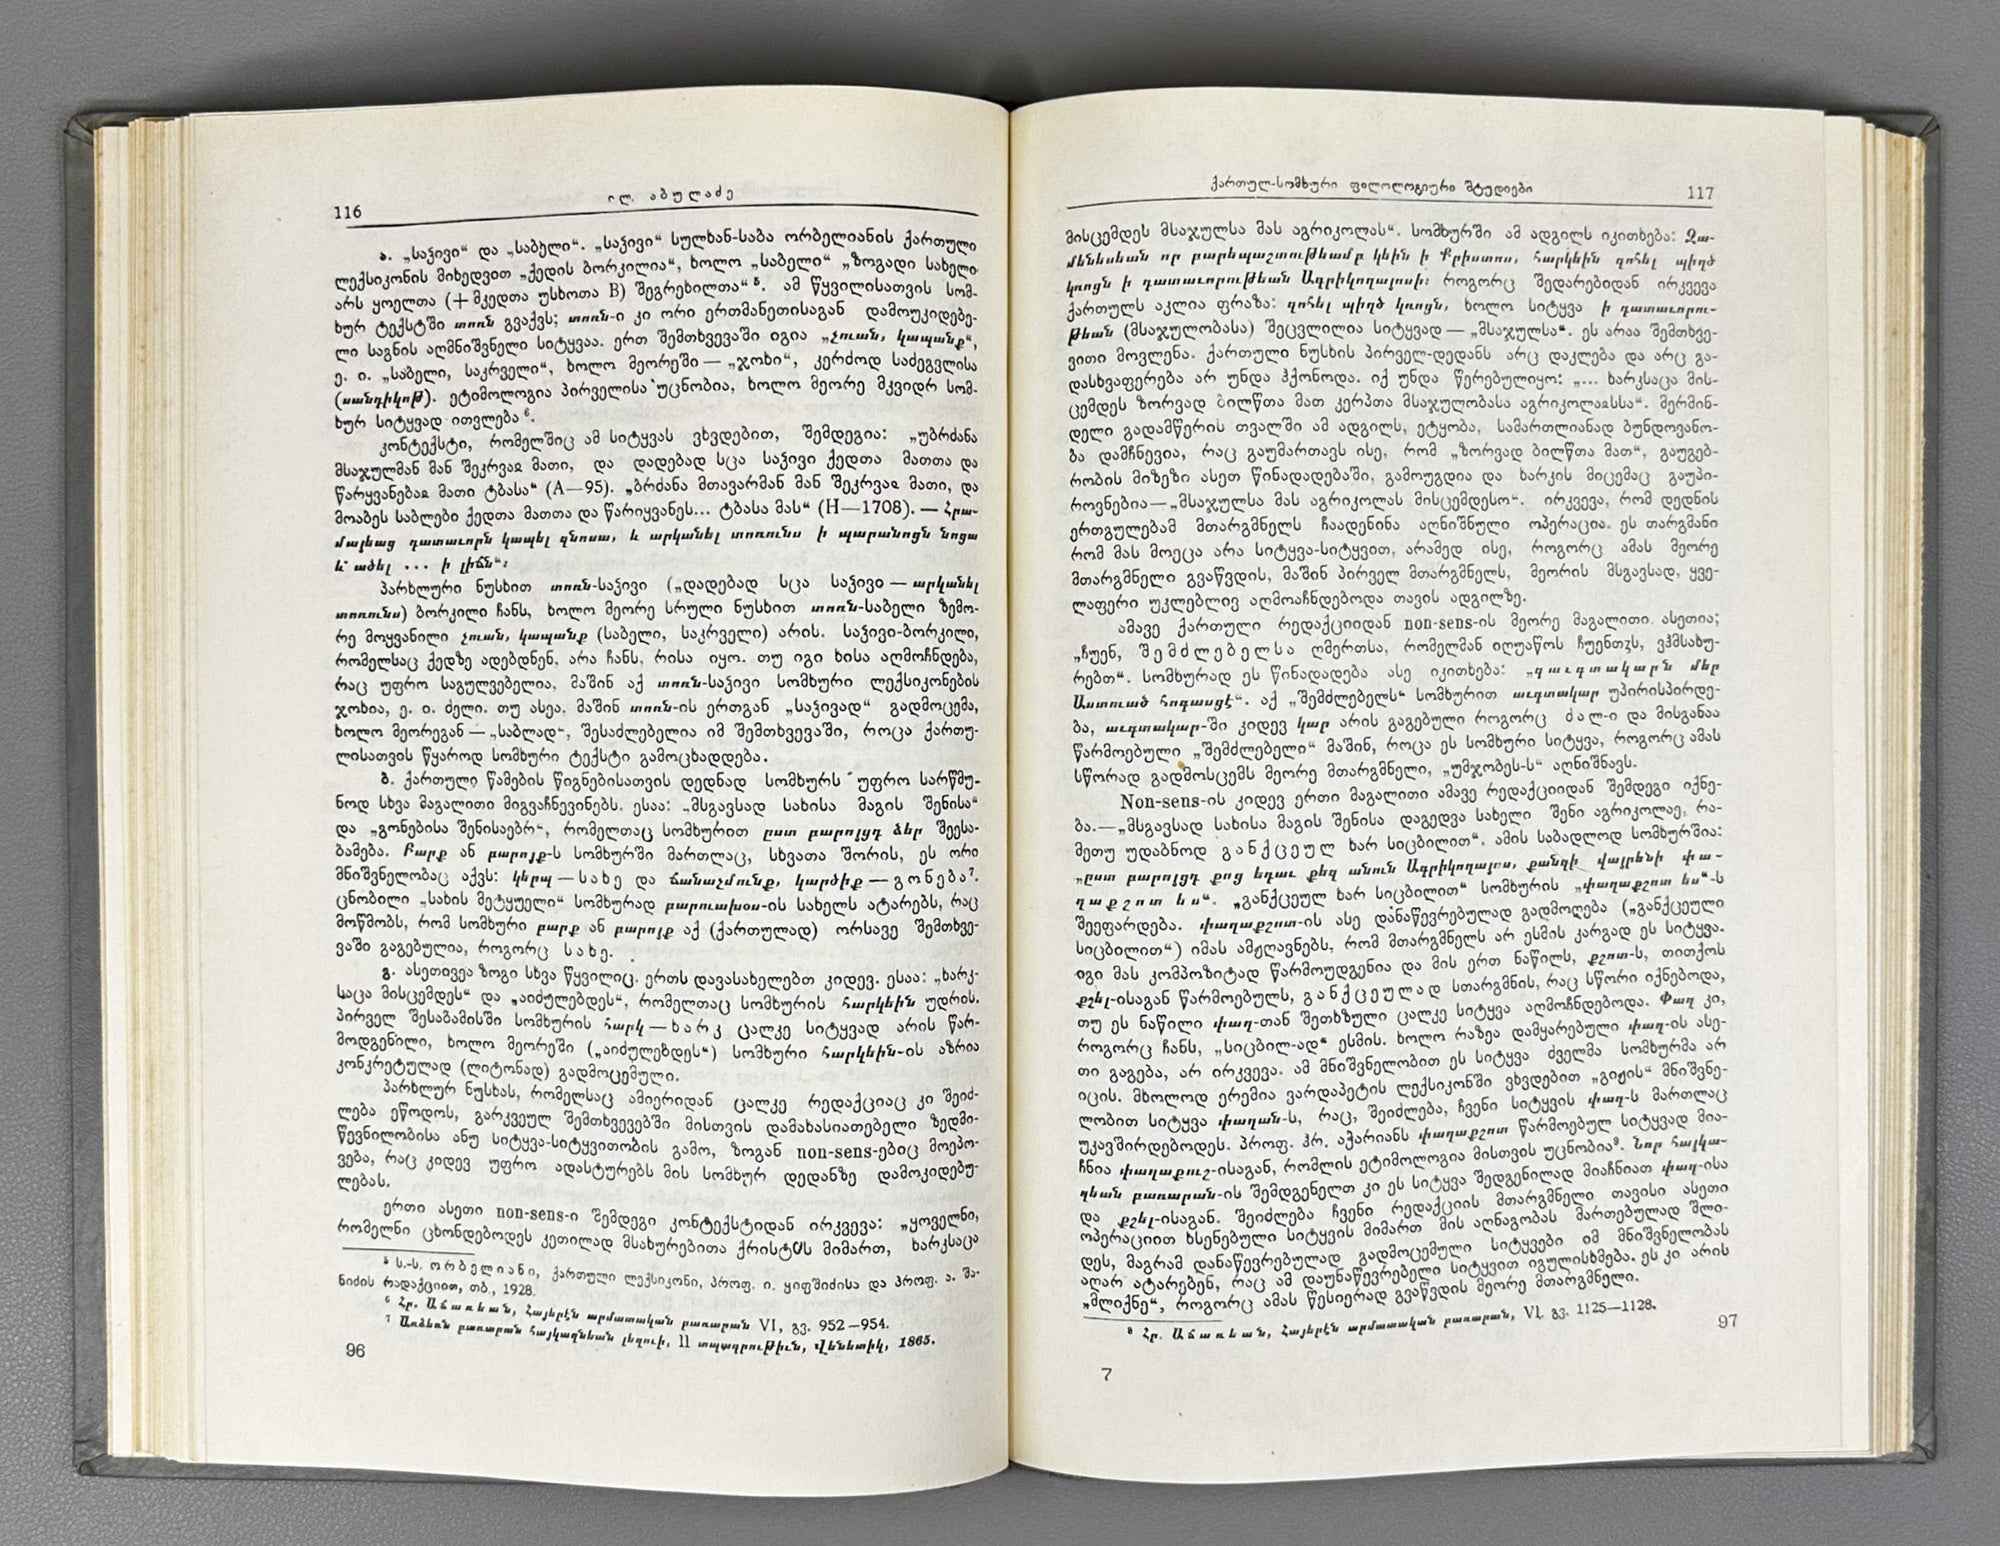 116
ილ. აბულაძე
ა. „საჴივი“ და „საბელი“. „საჴივი“ სულხან-საბა ორბელიანის ქართული
ლექსიკონის მიხედვით „ქედის ბორკილია“, ხოლო „საბელი“ „ზოგადი სახელი
არს ყოელთა (+მკედთა უსხოთა B) შეგრეხილთა“⁵. ამ წყვილისათვის სომ-
ხურ ტექსტში տոռն გვაქვს; տոռն-ი კი ორი ერთმანეთისაგან დამოუკიდებე-
ლი საგნის აღმნიშვნელი სიტყვაა. ერთ შემთხვევაში იგია „չուան, կապանք“,
ე. ი. „საბელი, საკრველი“, ხოლო მეორეში — „ჯოხი“, კერძოდ საძეგვლისა
(սանդիկոթ). ეტიმოლოგია პირველისა უცნობია, ხოლო მეორე მკვიდრ სომ-
ხურ სიტყვად ითვლება⁶.
კონტექსტი, რომელშიც ამ სიტყვას ვხვდებით, შემდეგია: „უბრძანა
მსაჯულმან მან შეკრვაჲ მათი, და დადებად სცა საჴივი ქედთა მათთა და
წარყვანებაჲ მათი ტბასა“ (A—95). „ბრძანა მთავარმან მან შეკრვაჲ მათი, და
მოაბეს საბლები ქედთა მათთა და წარიყვანეს... ტბასა მას“ (H—1708). — Հրա-
մայեաց դատաւորն կապել զնոսա, և արկանել տոռունս ի պարանոցն նոցա
և՝ ածել ... ի լիճն“։
პარხლური ნუსხით տոռն-საჴივი („დადებად სცა საჴივი — արկանել
տոռունս) ბორკილი ჩანს, ხოლო მეორე სრული ნუსხით տոռն-საბელი ზემო-
რე მოყვანილი չուան, կապանք (საბელი, საკრველი) არის. საჴივი-ბორკილი,
რომელსაც ქედზე ადებდნენ, არა ჩანს, რისა იყო. თუ იგი ხისა აღმოჩნდება,
რაც უფრო საგულვებელია, მაშინ აქ տոռն-საჴივი სომხური ლექსიკონების
ჯოხია, ე. ი. ძელი. თუ ასეა, მაშინ տոռն-ის ერთგან „საჴივად“ გადმოცემა,
ხოლო მეორეგან — „საბლად“, შესაძლებელია იმ შემთხვევაში, როცა ქართუ-
ლისათვის წყაროდ სომხური ტექსტი გამოცხადდება.
ბ. ქართული წამების წიგნებისათვის დედნად სომხურს უფრო სარწმუ-
ნოდ სხვა მაგალითი მიგვაჩნევინებს. ესაა: „მსგავსად სახისა მაგის შენისა“
და „გონებისა შენისაებრ“, რომელთაც სომხურით ըստ բարոյցդ ձեր შეესა-
ბამება. Բարք ან բարոյք-ს სომხურში მართლაც, სხვათა შორის, ეს ორი
მნიშვნელობაც აქვს: կերպ — სახე და ճանաչմունք, կարծիք — გონება⁷.
ცნობილი „სახის მეტყუელი“ სომხურად բարուախօս-ის სახელს ატარებს, რაც
მოწმობს, რომ სომხური բարք ან բարոյք აქ (ქართულად) ორსავე შემთხვე-
ვაში გაგებულია, როგორც სახე.
გ. ასეთივეა ზოგი სხვა წყვილიც. ერთს დავასახელებთ კიდევ. ესაა: „ხარკ-
საცა მისცემდეს“ და „აიძულებდეს“, რომელთაც სომხურის հարկեին უდრის.
პირველ შესაბამისში სომხურის հարկ — ხარკ ცალკე სიტყვად არის წარ-
მოდგენილი, ხოლო მეორეში („აიძულებდეს“) სომხური հարկեին-ის აზრია
კონკრეტულად (ლიტონად) გადმოცემული.
პარხლურ ნუსხას, რომელსაც ამიერიდან ცალკე რედაქციაც კი შეიძ-
ლება ეწოდოს, გარკვეულ შემთხვევებში მისთვის დამახასიათებელი ზედმი-
წევნილობისა ანუ სიტყვა-სიტყვითობის გამო, ზოგან non-sens-ებიც მოეპო-
ვება, რაც კიდევ უფრო ადასტურებს მის სომხურ დედანზე დამოკიდებუ-
ლებას.
ერთი ასეთი non-sens-ი შემდეგი კონტექსტიდან ირკვევა: „ყოველნი,
რომელნი ცხონდებოდეს კეთილად მსახურებითა ქრისტჱს მიმართ, ხარკსაცა
⁵ ს.-ს. ორბელიანი, ქართული ლექსიკონი, პროფ. ი. ყიფშიძისა და პროფ. ა. შა-
ნიძის რადაქციით, თბ., 1928.
⁶ Հր. Աճառեան, Հայերէն արմատական բառարան VI, გვ. 952—954.
⁷ Առձեռն բառարան հայկազնեան լեզուի, II տպագրութիւն, վենետիկ, 1865.
96
ქართულ-სომხური ფილოლოგიური შტუდიები
117
მისცემდეს მსაჯულსა მას აგრიკოლას“. სომხურში ამ ადგილს იკითხება: Զա-
մենեսեան որ բարեպաշտութեամբ կեին ի Քրիստոս, հարկեին զոհել պիղծ
կռոցն ի դատաւորութեան Ագրիկողայոսի։ როგორც შედარებიდან ირკვევა
ქართულს აკლია ფრაზა: զոհել պիղծ կռոցն, ხოლო სიტყვა ի դատաւորու-
թեան (მსაჯულობასა) შეცვლილია სიტყვად — „მსაჯულსა“. ეს არაა შემთხვე-
ვითი მოვლენა. ქართული ნუსხის პირველ-დედანს არც დაკლება და არც გა-
დასხვაფერება არ უნდა ჰქონოდა. იქ უნდა წერებულიყო: „... ხარკსაცა მის-
ცემდეს ზორვად ბილწთა მათ კერპთა მსაჯულობასა აგრიკოლაჲსსა“. მერმინ-
დელი გადამწერის თვალში ამ ადგილს, ეტყობა, სამართლიანად ბუნდოვანო-
ბა დამჩნევია, რაც გაუმართავს ისე, რომ „ზორვად ბილწთა მათ“, გაუგებ-
რობის მიზეზი ასეთ წინადადებაში, გამოუგდია და ხარკის მიცემაც გაუპი-
როვნებია — „მსაჯულსა მას აგრიკოლას მისცემდესო“. ირკვევა, რომ დედნის
ერთგულებამ მთარგმნელს ჩაადენინა აღნიშნული ოპერაცია. ეს თარგმანი
რომ მას მოეცა არა სიტყვა-სიტყვით, არამედ ისე, როგორც ამას მეორე
მთარგმნელი გვაწვდის, მაშინ პირველ მთარგმნელს, მეორის მსგავსად, ყვე-
ლაფერი უკლებლივ აღმოაჩნდებოდა თავის ადგილზე.
ამავე ქართული რედაქციიდან non-sens-ის მეორე მაგალითი ასეთია;
„ჩუენ, შემძლებელსა ღმერთსა, რომელმან იღუაწოს ჩუენთჳს, ვჰმსახუ-
რებთ“. სომხურად ეს წინადადება ასე იკითხება: „զաւգտակարն մեր
Աստուած հոգասցէ“. აქ „შემძლებელს“ სომხურით աւգտակար უპირისპირდე-
ბა, աւգտակար-ში კიდევ կար არის გაგებული როგორც ძალ-ი და მისგანაა
წარმოებული „შემძლებელი“ მაშინ, როცა ეს სომხური სიტყვა, როგორც ამას
სწორად გადმოსცემს მეორე მთარგმნელი, „უმჯობეს-ს“ აღნიშნავს.
Non-sens-ის კიდევ ერთი მაგალითი ამავე რედაქციიდან შემდეგი იქნე-
ბა. — „მსგავსად სახისა მაგის შენისა დაგედვა სახელი შენი აგრიკოლაე, რა-
მეთუ უდაბნოდ განქცეულ ხარ სიცბილით“. ამის საბადლოდ სომხურშია:
„ըստ բարոյցդ քոց եդաւ քեզ անուն Ագրիկողայոս, քանզի վայրենի փա-
ղաքշոտ ես“. „განქცეულ ხარ სიცბილით“ სომხურის „փաղաքշոտ ես“-ს
შეეფარდება. փաղաքշոտ-ის ასე დანაწევრებულად გადმოღება („განქცეული
სიცბილით“) იმას ამჟღავნებს, რომ მთარგმნელს არ ესმის კარგად ეს სიტყვა.
იგი მას კომპოზიტად წარმოუდგენია და მის ერთ ნაწილს, քշոտ-ს, თითქოს
քշել-ისაგან წარმოებულს, განქცეულად სთარგმნის, რაც სწორი იქნებოდა,
თუ ეს ნაწილი փաղ-თან შეთხზული ცალკე სიტყვა აღმოჩნდებოდა. Փաղ კი,
როგორც ჩანს, „სიცბილ-ად“ ესმის. ხოლო რაზეა დამყარებული փաղ-ის ასე-
თი გაგება, არ ირკვევა. ამ მნიშვნელობით ეს სიტყვა ძველმა სომხურმა არ
იცის. მხოლოდ ერემია ვარდაპეტის ლექსიკონში ვხვდებით „გიჟის“ მნიშვნე-
ლობით სიტყვა փաղան-ს, რაც, შეიძლება, ჩვენი სიტყვის փաղ-ს მართლაც
უკავშირდებოდეს. პროფ. ჰრ. აჭარიანს փաղաքշոտ წარმოებულ სიტყვად მია-
ჩნია փաղաքուշ-ისაგან, რომლის ეტიმოლოგია მისთვის უცნობია⁸. Նոր հայկա-
զեան բառարան-ის შემდგენელთ კი ეს სიტყვა შედგენილად მიაჩნიათ փաղ-ისა
და քշել-ისაგან. შეიძლება ჩვენი რედაქციის მთარგმნელი თავისი ასეთი
ოპერაციით ხსენებული სიტყვის მიმართ მის აღნაგობას მართებულად შლი-
დეს, მაგრამ დანაწევრებულად გადმოცემული სიტყვები იმ მნიშვნელობას
აღარ ატარებენ, რაც ამ დაუნაწევრებელი სიტყვით იგულისხმება. ეს კი არის
„მლიქნე“, როგორც ამას წესიერად გვაწვდის მეორე მთარგმნელი.
⁸ Հր. Աճառեան, Հայերէն արմատական բառարան, VI, გვ. 1125—1128.
7
97